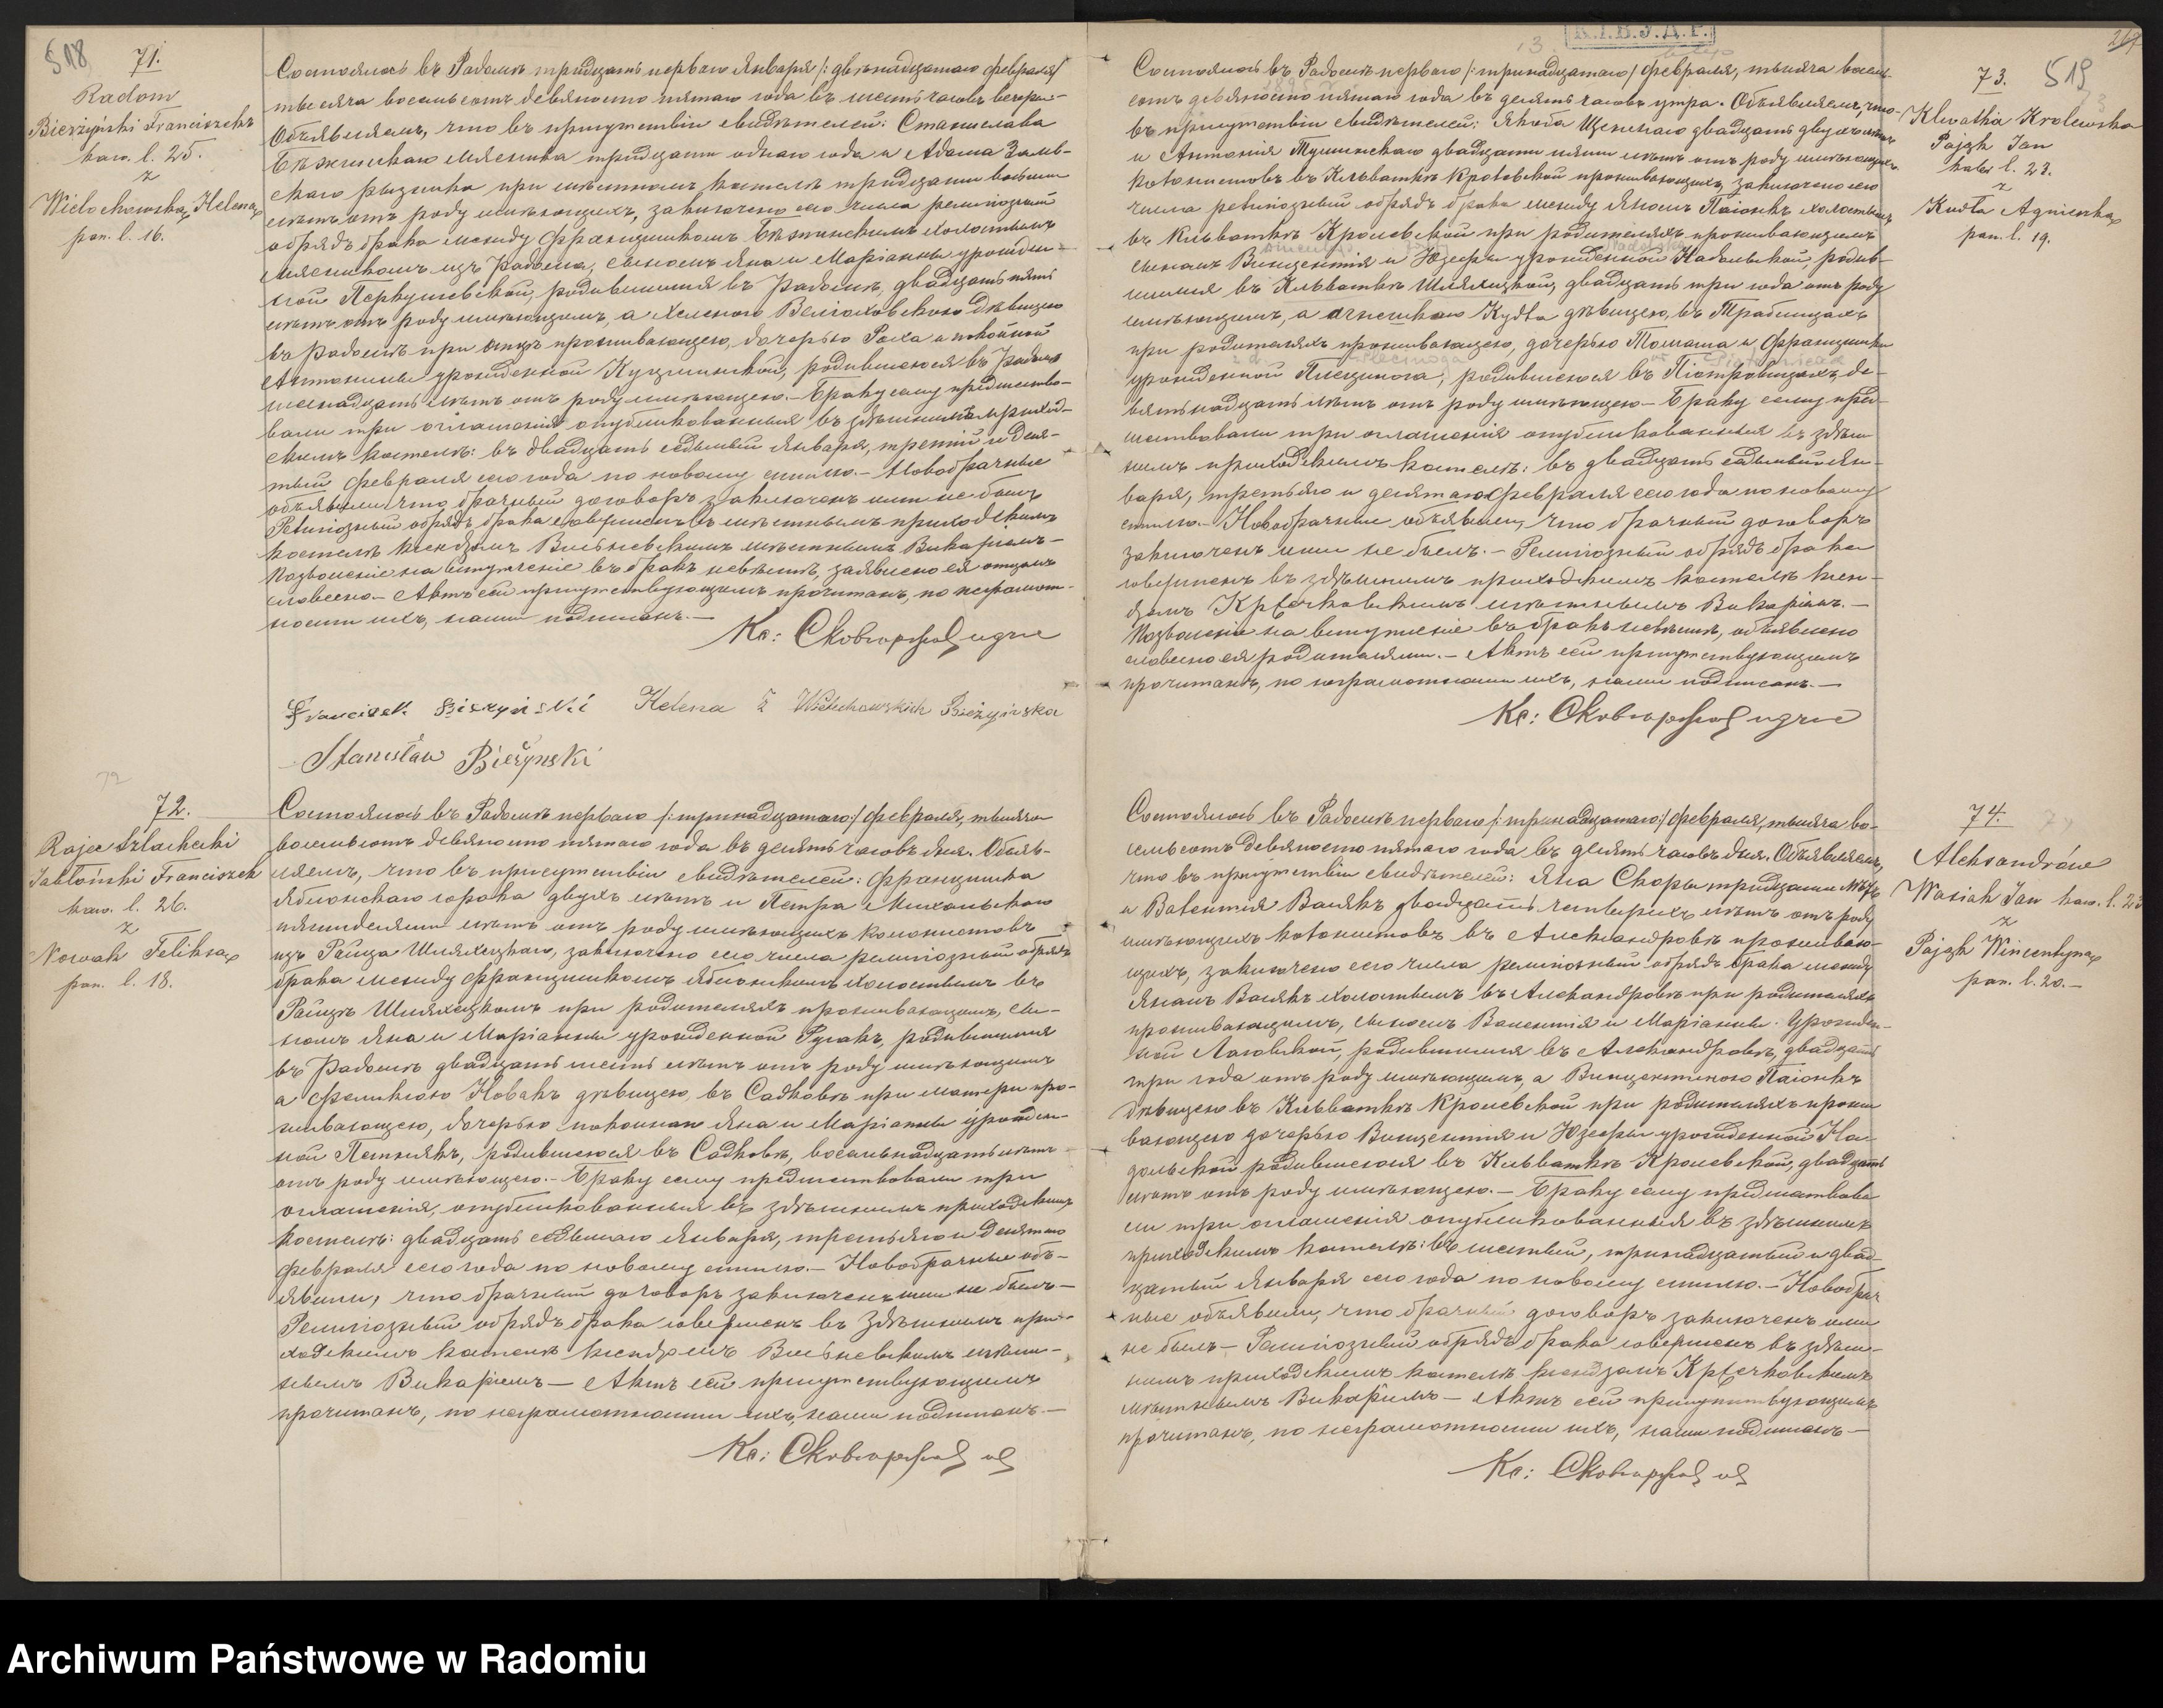 518
71.
Radom
Bieżyński Franciszek
kaw. l. 25.
z
Wielochowska Helena
pan. l. 16.
Состоялось въ Радомѣ тридцать перваго Января /: двѣнадцатаго Февраля/
тысяча восемьсотъ девяносто пятаго года въ шесть часовъ вечера.-
Объявляемъ, что въ присутствіи свидѣтелей: Станислава
Бѣжинскаго мясника тридцати одного года и Адама Залѣв-
скаго рѣзника при мѣстномъ костелѣ тридцати восьми
лѣтъ отъ роду имѣющихъ, заключенъ сего числа религіозный
обрядъ брака между Францишкомъ Бѣжинскимъ холостымъ
мясникомъ изъ Радома, сыномъ Яна и Маріанны урожден-
ной родившимся въ Радомѣ, двадцать пять
лѣтъ отъ роду имѣющимъ, а Хеленою Велоховскою дѣвицею
въ Радомѣ при отцѣ проживающею, дочерью Роха и покойной
Антонины урожденной Кузминской, родившеюся въ Радомѣ
шеснадцать лѣтъ отъ роду имѣющею.- Браку сему предшество-
вали три оглашенія опубликованныя въ здѣшнемъ приход-
скомъ костелѣ: въ двадцать седьмый Января, третій и деся-
тый Февраля сего года по новому стилю.- Новобрачные
объявили что брачный договоръ заключенъ ими не былъ
Религіозный обрядъ брака совершенъ въ мѣстномъ приходскомъ
костелѣ ксендзомъ Висьневскимъ мѣстнымъ Викаріемъ-
Позволеніе на вступленіе въ бракъ невѣстѣ, заявлено ея отцомъ
словесно.- Актъ сей присутствующимъ прочитанъ, по неграмот-
ности ихъ, нами подписанъ.-
Кс:
Franciszek Bieżyński Helena z Wielochowskich Bieżyńska
Stanisław Bieżyński
72
72.
Rajec Szlachecki
Jabłoński Franciszek
kaw. l. 26.
z
Nowak Feliksa
pan. l. 18.
Состоялось въ Радомѣ перваго /: тринадцатаго:/ Февраля, тысяча
восемьсотъ девяносто пятаго года въ десять часовъ дня. Объяв-
ляемъ, что въ присутствіи свидѣтелей: Францишка
Яблонскаго сорока двухъ лѣтъ и Петра Михальскаго
пятидесяти лѣтъ отъ роду имѣющихъ колонистовъ
изъ Райца Шляхецкаго, заключенъ сего числа религіозный обрядъ
брака между Францишкомъ Яблонскимъ холостымъ въ
Райцѣ Шляхецкомъ при родителяхъ проживающимъ, сы-
номъ Яна и Маріанны урожденной Русакъ, родившимся
въ Радомѣ двадцать шесть лѣтъ отъ роду имѣющимъ
а Феликсою Новакъ дѣвицею, въ Садковѣ при матери про-
живающею, дочерью покойнаго Яна и Маріанны урожден-
ной Петнякъ, родившеюся въ Садковѣ, восемьнадцать лѣтъ
отъ роду имѣющею.- Браку сему предшествовали три
оглашенія, опубликованныя въ здѣшнемъ приходскомъ
костелѣ: двадцать седьмаго Января, третьяго и десятаго
Февраля сего года по новому стилю.- Новобрачные объ-
явили, что брачный договоръ заключенъ ими не былъ-
Религіозный обрядъ брака совершенъ въ здѣшнемъ при-
ходскомъ костелѣ ксендзомъ Висьневскимъ мѣст-
нымъ Викаріемъ- Актъ сей присутствующимъ
прочитанъ, по неграмотности ихъ, нами подписанъ.-
Кс:
519
73.
Klwatka Krolewska
Pająk Jan
kaw. l. 23.
z
Kudła Agnieszka
pan. l. 19.
Состоялось въ Радомѣ перваго /: тринадцатаго/ Февраля, тысяча восемь-
сотъ девяносто пятаго года въ десять часовъ утра. Объявляемъ, что
въ присутствіи свидѣтелей: Якова двадцать двухъ лѣтъ
и Антонія двадцати пяти лѣтъ отъ роду имѣющихъ
колонистовъ въ Кльваткѣ Кролевской проживающихъ, заключенъ сего
числа религіозный обрядъ брака между Яномъ Паіонкъ холостымъ
въ Кльваткѣ Кролевской при родителяхъ проживающимъ
сыномъ Винцентія и Юзефы урожденной Надольской, родив-
шимся въ Кльваткѣ Шляхецкой, двадцать три года отъ роду
имѣющимъ, а Агнешкою Кудла дѣвицею, въ Трабницахъ
при родителяхъ проживающею, дочерью Томаша и Францишки
урожденной Плецинога, родившеюся въ Піотровицахъ де-
вятьнадцать лѣтъ отъ роду имѣющею- Браку сему пред-
шествовали три оглашенія опубликованныя въ здѣш-
немъ приходскомъ костелѣ: въ двадцать седьмый Ян-
варя, третьяго и десятаго Февраля сего года по новому
стилю.- Новобрачные объявили, что брачный договоръ
заключенъ ими не былъ.- Религіозный обрядъ брака
совершенъ въ здѣшнемъ приходскомъ костелѣ ксен-
дзомъ мѣстнымъ Викаріемъ.-
Позволеніе на вступленіе въ бракъ невѣстѣ, объявлено
словесно ея родителями.- Актъ сей присутствующимъ
прочитанъ, по неграмотности ихъ, нами подписанъ.-
Кс:
74.
Aleksandrów
Wasiak Jan kaw. l. 23
z
Pająk Wincentyna
pan. l. 20.-
Состоялось въ Радомѣ перваго /: тринадцатаго:/ Февраля, тысяча во-
семьсотъ девяносто пятаго года въ десять часовъ дня. Объявляемъ,
что въ присутствіи свидѣтелей: Яна Скоры тридцати лѣтъ
и Валентія Васякъ двадцати четырехъ лѣтъ отъ роду
имѣющихъ колонистовъ въ Александровѣ прожива-
ющихъ, заключенъ сего числа религіозный обрядъ брака между
Яномъ Васякъ холостымъ въ Александровѣ при родителяхъ
проживающимъ, сыномъ Валентія и Маріанны урожден-
ной родившимся въ Александровѣ, двадцать
три года отъ роду имѣющимъ, а Винцентиною Паіонкъ
дѣвицею въ Кльваткѣ Кролевской при родителяхъ прожи
вающею дочерью Винцентія и Юзефы урожденной На-
дольской родившеюся въ Кльваткѣ Кролевской, двадцать
лѣтъ отъ роду имѣющею.- Браку сему предшествова
ли три оглашенія опубликованныя въ здѣшнемъ
приходскомъ костелѣ: въ шестый, тринадцатый и двад-
цатый Января сего года по новому стилю.- Новобрач
ные объявили, что брачный договоръ заключенъ ими
не былъ- Религіозный обрядъ брака совершенъ въ здѣш-
немъ приходскомъ костелѣ ксендзомъ
мѣстнымъ Викаріемъ- Актъ сей присутствующимъ
прочитанъ, по неграмотности ихъ, нами подписанъ-
Кс:
Archiwum Państwowe w Radomiu